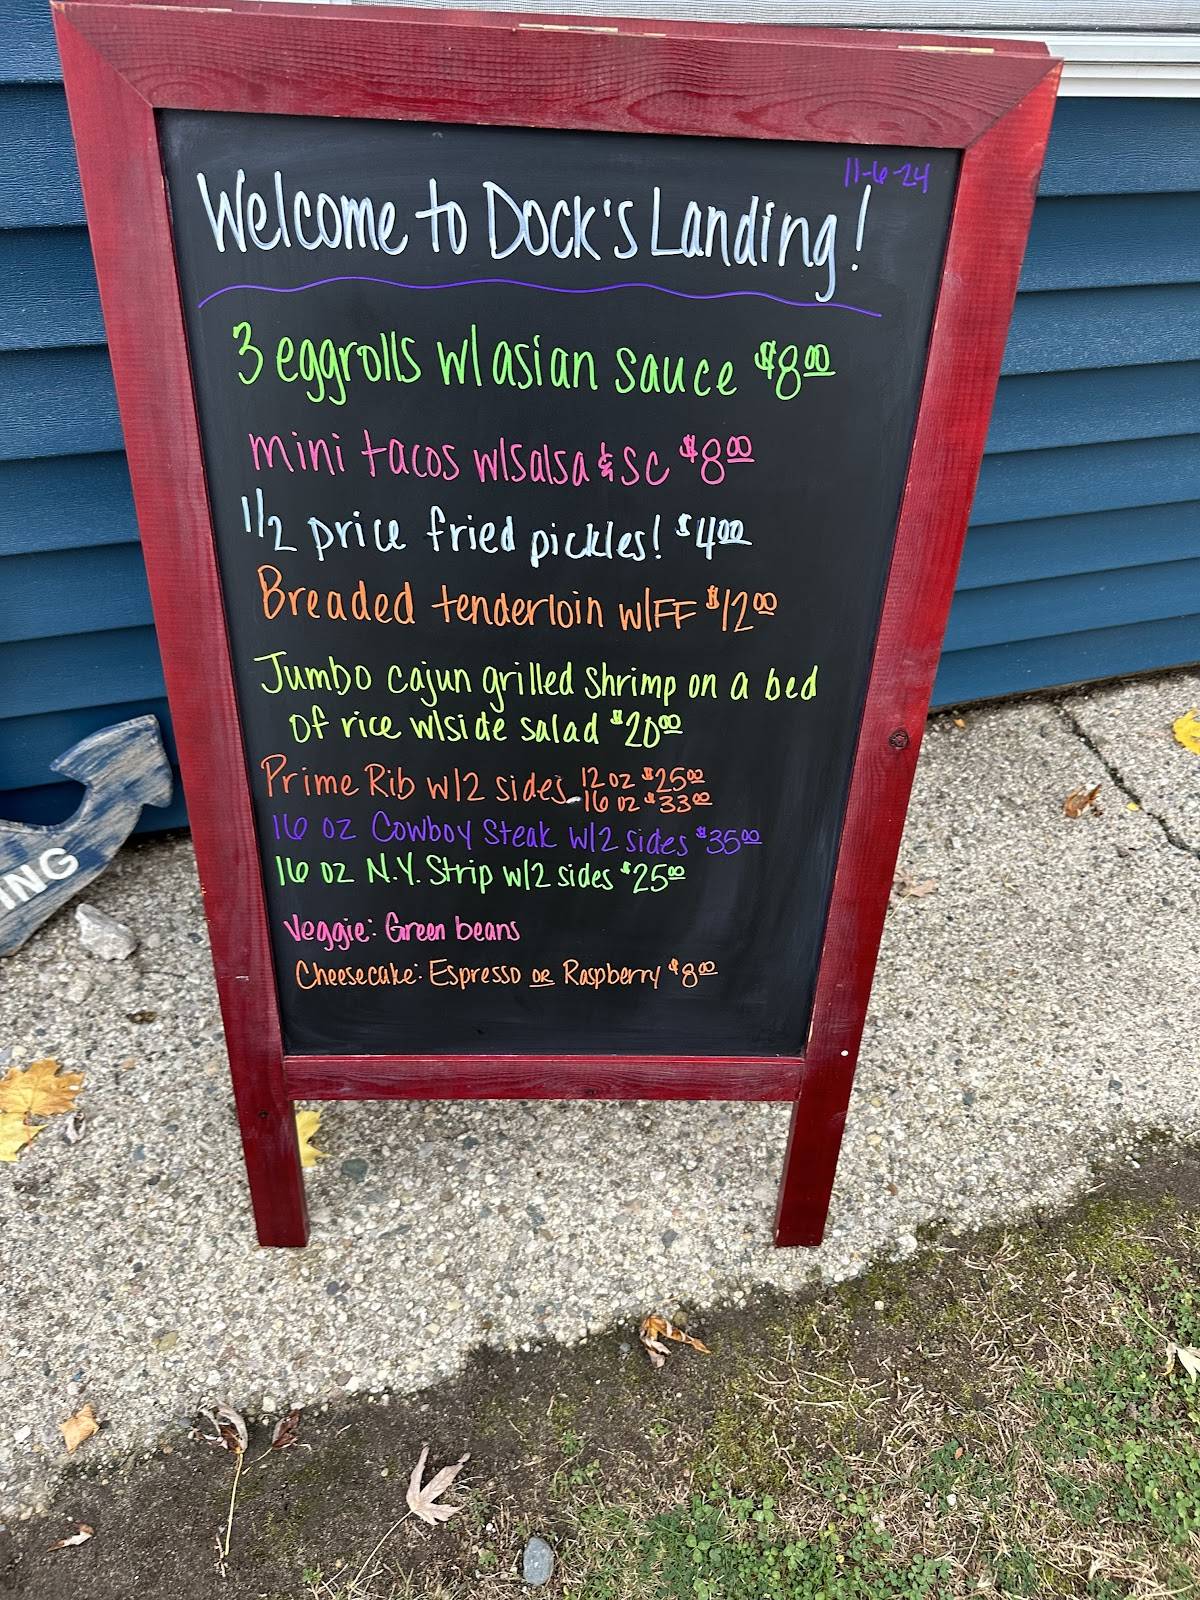 11-6-24
Welcome to Dock's Landing!
3 eggrolls w/asian sauce $8.00
mini tacos w/salsa & SC $8.00
1/2 price fried pickles! $4.00
Breaded tenderloin w/FF $12.00
Jumbo cajun grilled shrimp on a bed
of rice w/side salad $20.00
Prime Rib w/2 sides - 12 oz $25.00
16 oz $33.00
16 oz Cowboy Steak w/2 sides $35.00
16 oz N.Y. Strip w/2 sides $25.00
Veggie: Green beans
Cheesecake: Espresso or Raspberry $8.00
ING